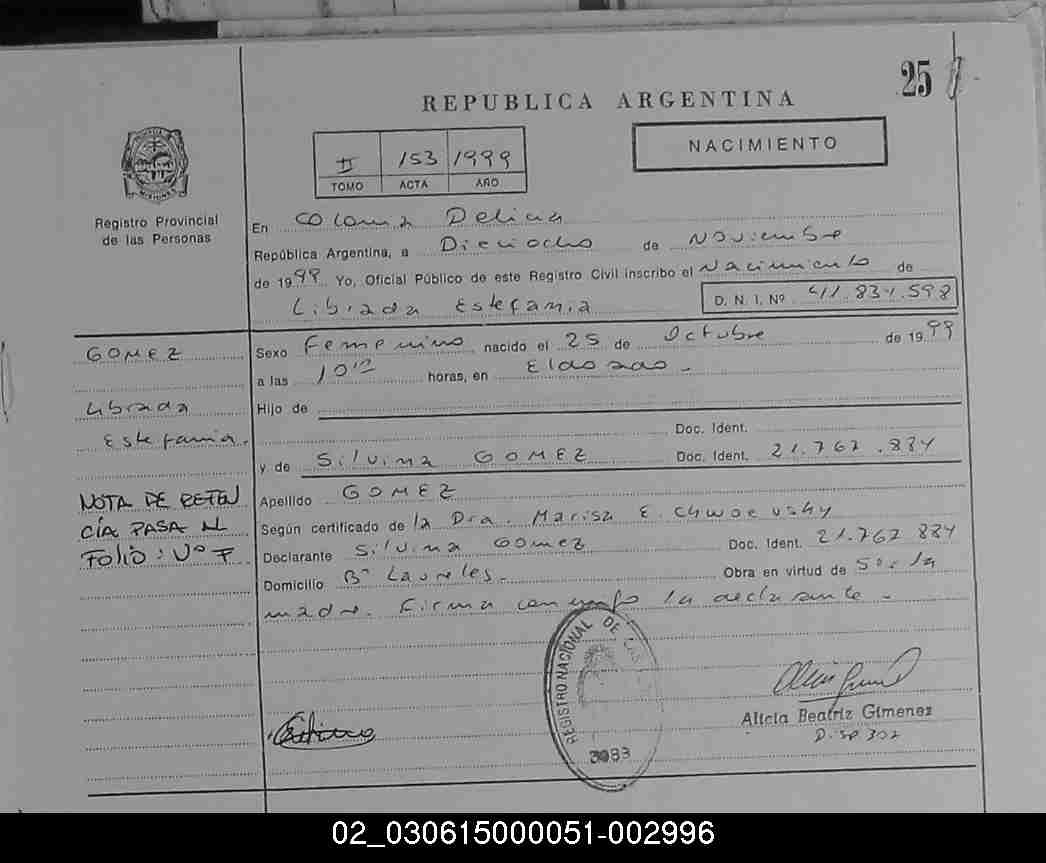 25
REPUBLICA ARGENTINA
II 153 1999
TOMO ACTA AÑO
NACIMIENTO
Registro Provincial
de las Personas
En Colonia Delicia
República Argentina, a Dieciocho de Noviembre
de 1999 Yo, Oficial Público de este Registro Civil inscribo el Nacimiento de
Librada Estefania D. N. I. Nº 41.834.598
GOMEZ
Librada
Estefania.
NOTA DE RETEN
CÍA PASA AL
FOLIO: Nº 7
Sexo Femenino nacido el 25 de Octubre de 1999
a las 10 horas, en Eldorado -
Hijo de
Doc. Ident.
y de Silvina GOMEZ Doc. Ident. 21.767.884
Apellido GOMEZ
Según certificado de la Dra. Marisa E.
Declarante Silvina Gomez Doc. Ident. 21.767 884
Domicilio Bº Laureles - Obra en virtud de Ser la
madre. Firma conmigo la declarante -
REGISTRO NACIONAL DE LAS
3083
Alicia Beatriz Gimenez
02_030615000051-002996